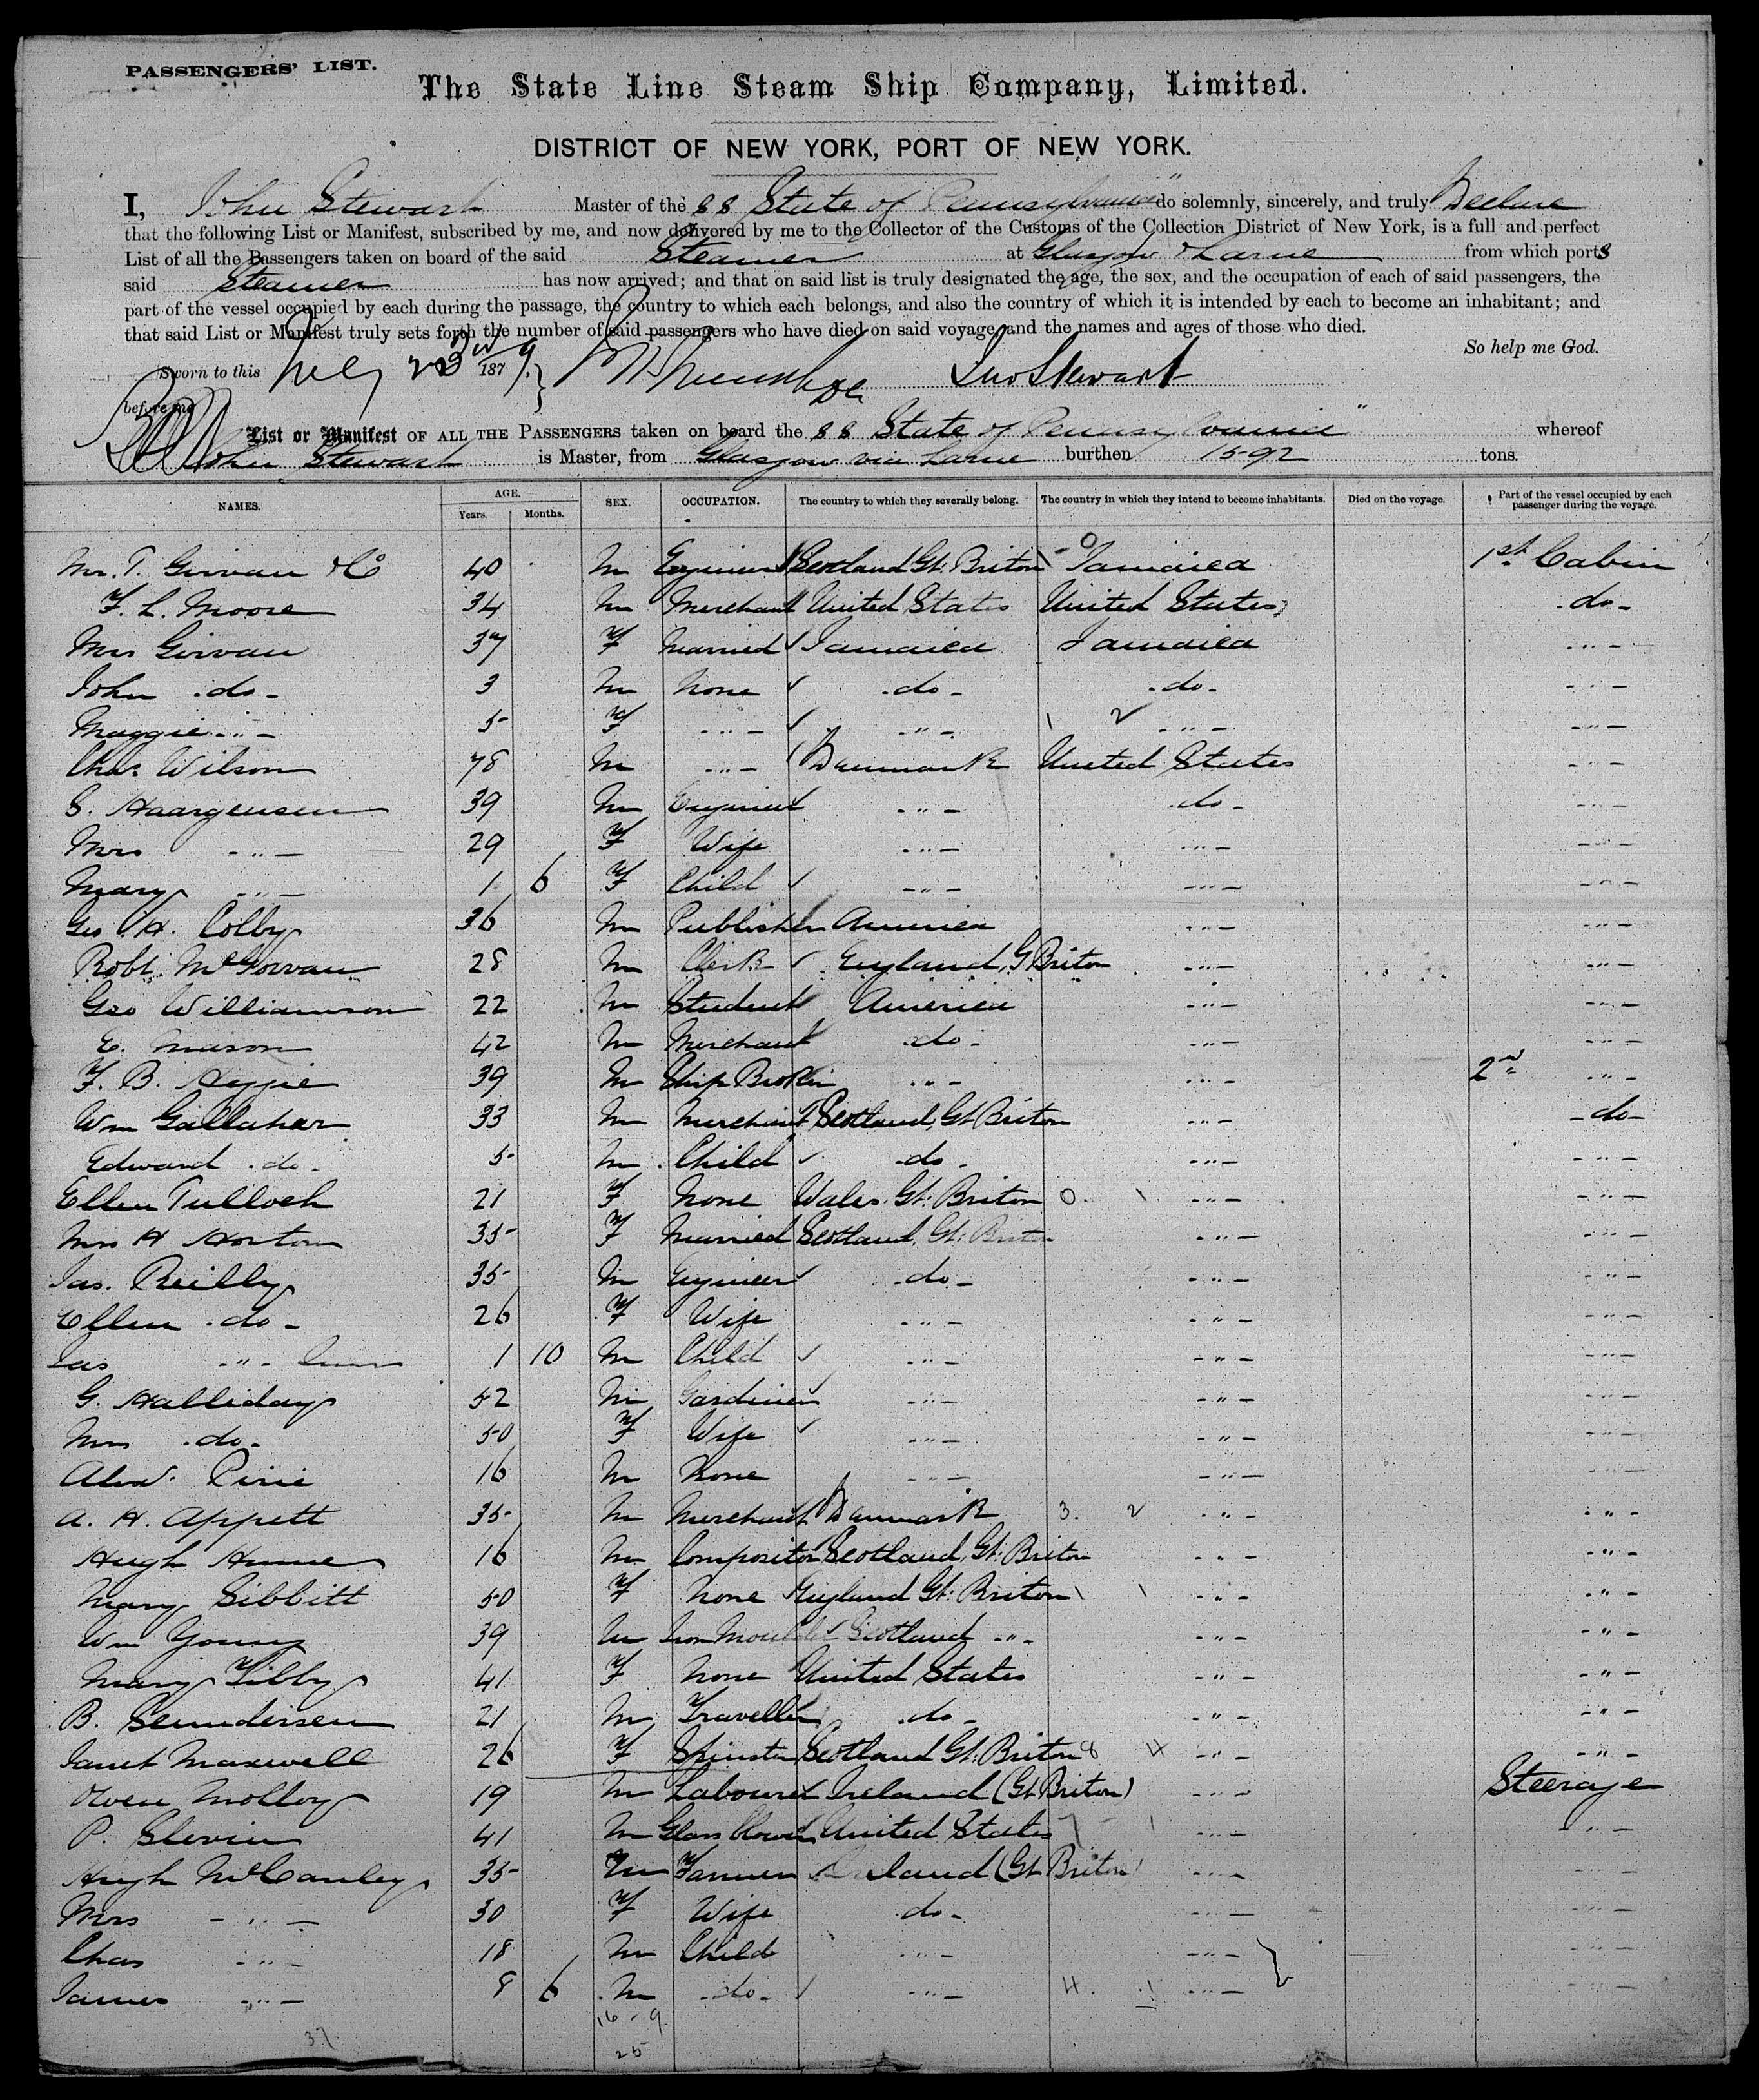 PASSENGERS' LIST.
The State Line Steam Ship Company, Limited.
DISTRICT OF NEW YORK, PORT OF NEW YORK.
I, John Stewart Master of the SS State of Pennsylvania" do solemnly, sincerely, and truly Declare
that the following List or Manifest, subscribed by me, and now delivered by me to the Collector of the Customs of the Collection District of New York, is a full and perfect
List of all the Passengers taken on board of the said Steamer at Glasgow & Larne from which ports
said Steamer has now arrived; and that on said list is truly designated the age, the sex, and the occupation of each of said passengers, the
part of the vessel occupied by each during the passage, the country to which each belongs, and also the country of which it is intended by each to become an inhabitant; and
that said List or Manifest truly sets forth the number of said passengers who have died on said voyage, and the names and ages of those who died.
So help me God.
Sworn to this 23rd 1879. Jno Stewart
before me
List or Manifest OF ALL THE PASSENGERS taken on board the SS State of Pennsylvania" whereof
John Stewart is Master, from Glasgow via Larne burthen 1592 tons.
NAMES. AGE. SEX. OCCUPATION. The country to which they severally belong. The country in which they intend to become inhabitants. Died on the voyage. Part of the vessel occupied by each passenger during the voyage.
Years. Months.
Mr. T. Girvan 40 M Engineer Scotland Gt. Briton Jamaica 1st Cabin
F. L. Moore 34 M Merchant United States United States do
Mrs Girvan 37 F Married Jamaica Jamaica " 
John do 3 M None do do "
Maggie " 5 F " " " "
Chas Wilson 78 M " Danmark United States "
S. Haargensen 39 M Engineer " do "
Mrs " 29 F Wife " " "
Mary " 1 6 F Child " " "
Geo. H. Colby 36 M Publisher America " "
Robt. McGowan 28 M Clerk England, G Briton " "
Geo Williamson 22 M Student America " "
E. Mason 42 M Merchant do " "
F. B. 39 M Ship Broker " " 2nd "
Wm Gallahar 33 M Merchant Scotland, Gt Briton " do
Edward do 5 M Child do " "
Ellen Tulloch 21 F None Wales. Gt: Briton " "
Mrs H Horton 35 F Married Scotland, Gt: Briton " "
Jas. Reilly 35 M Engineer do " "
Ellen do 26 F Wife " " "
Jas " Junr 1 10 M Child " " "
G. Halliday 52 M Gardiner " " "
Mrs do 50 F Wife " " "
Alexr. Pirie 16 M None " " "
A. H. Appett 35 M Merchant Danmark 3. 2 " "
Hugh Hume 16 M Compositor Scotland, Gt: Briton " "
Mary Sibbitt 50 F None England Gt: Briton 1 1 " "
Wm Young 39 M Iron Moulder Scotland " " "
Mary Tibby 41 F None United States " "
B. Seundersen 21 M Traveller do " "
Janet Maxwell 26 F Spinster Scotland Gt: Briton 8 4 " "
Owen Molloy 19 M Labourer Ireland (Gt Briton) " Steerage
P. Slevin 41 M Glass blower United States 7 1 " "
Hugh McCauley 35 M Farmer Ireland (Gt Briton) " "
Mrs " 30 F Wife do " "
Chas " 18 M Child " " "
James " 8 6 M do " 4. 1 " "
16 - 9
37
25